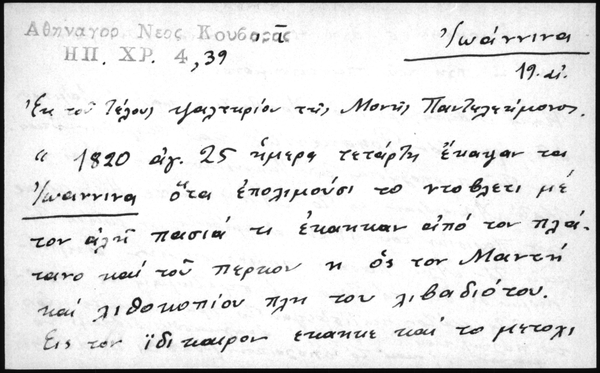 Αθηναγορ. Νεος Κουβαρᾶς
ΗΠ. ΧΡ. 4, 39
Ἰωάννινα
19. αἰ.
Ἐκ τοῦ τέλους ψαλτηρίου τῆς Μονῆς Παντελεήμονος.
" 1820 αγ. 25 ἡμερα τετάρτη ἔκαψαν τα
Ἰωαννινα ὅτα ἐπολιμούσι το ντοβλετι μέ
τον αλῆ πασιά κι ἐκαηκαν από τον πλά-
τανο καί τοῦ περκον η ὁς τον Μαντή
καί λιθοκοπίου πλη του λιβαδιότου.
Εις τον ϊδικαιρον εκαηκε καί το μετοχι